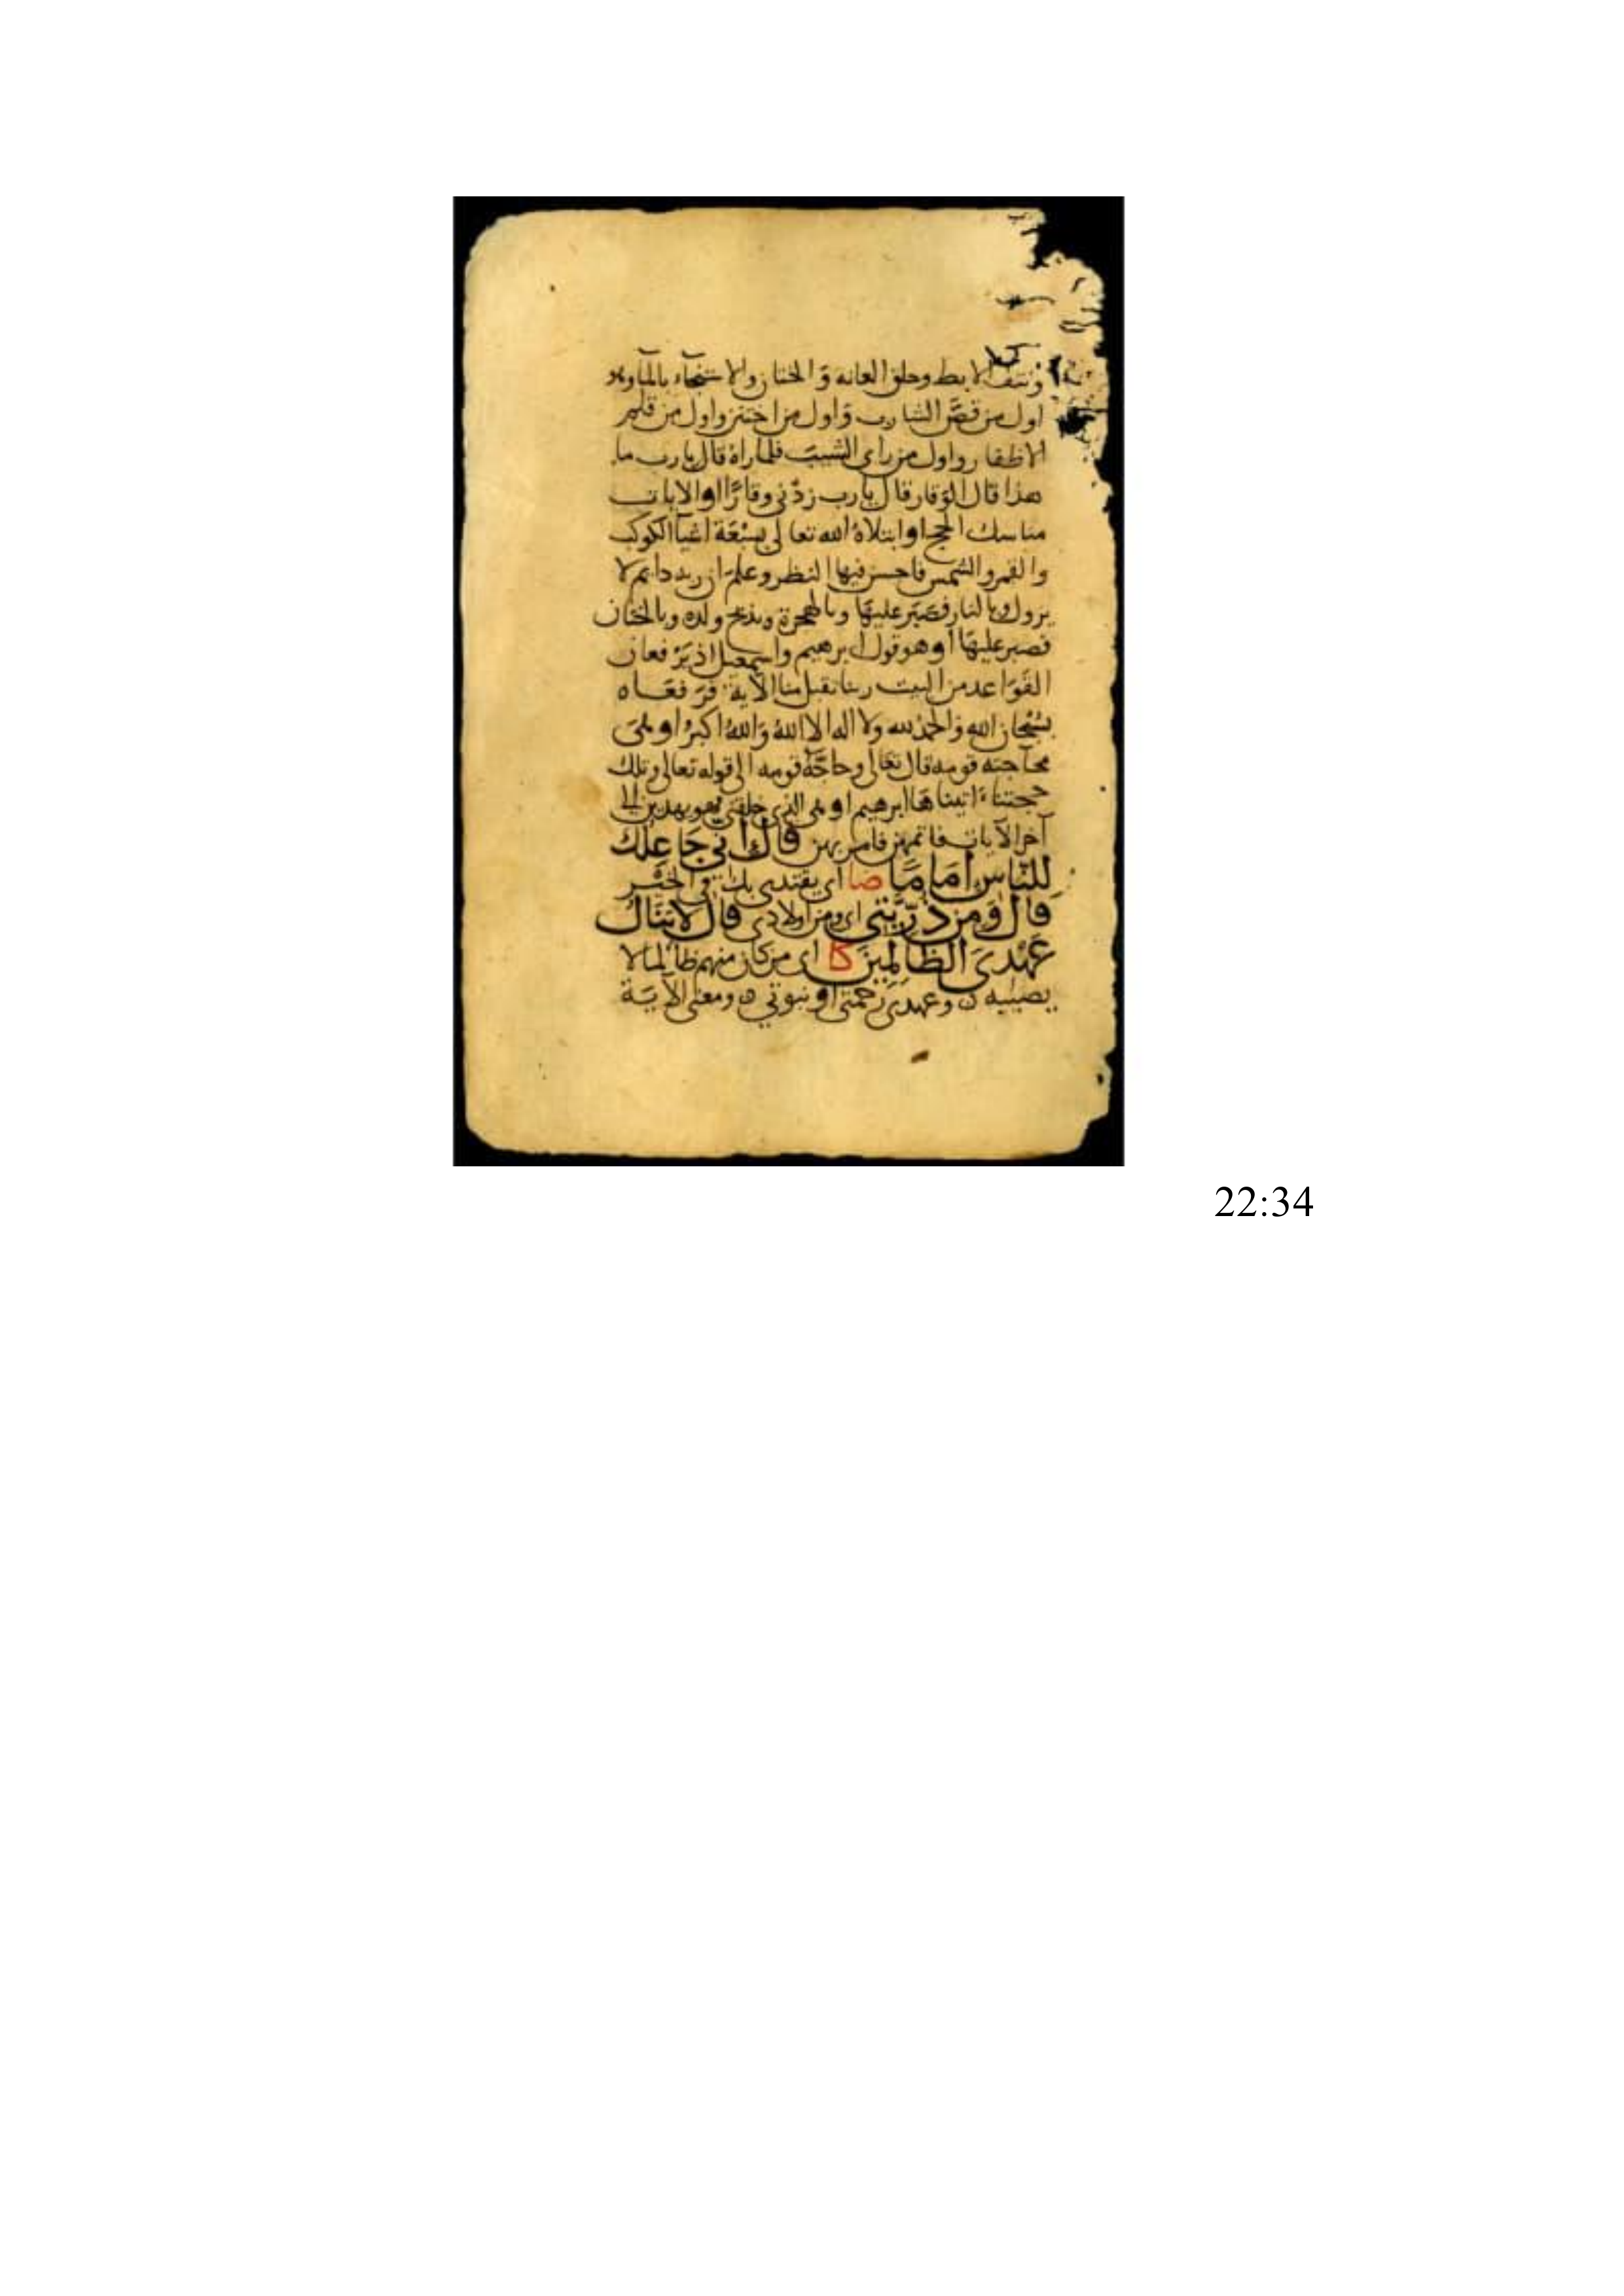 ونتف الابط وحلق العانة وَالختان والاستنجآء بالمآ وهو
اول من قصَّ الشارب وَاول من اختتن واول من قلم
الاظفار واول من راى الشيبَ فلما راهُ قال يارب ما
هذا قال الوَقار قال يارب زدْني وقارًا او الايات
مناسك الحج او ابتلاهُ الله تعالى بسَبْعَة اشيآ الكوكب
والقمر والشمس فاحسن فيها النظر وعلمَ ان ربه دايم لا
يزول وبالنار فصَبَر عليهَا وبالهجرة وبذبح ولده وبالختان
فصبر عليهَا او هو قول ابرهيم واسمعيل اذ يَرْفعان
القوَاعد من البيت ربنا تقبل منا الآية فرَفعَاه
بسُبْحان الله وَالحمْد لله ولا اله الا اللهُ وَاللهُ اكبرُ او هىَ
محآجته قومه قال تعَالى وحاجَّهُ قومه الى قوله تعالى وتلك
حجتنا ءاتيناهَا ابرهيم او هى الذى خلقنى فهو يهدين الى
آخر الآيات فاتمهن قام بهن قَالَ انِّي جَاعِلُكَ
لِلنَّاسِ اِمَامًا صا اى يقتدى بك في الخيْر
قالَ وَمِن ذرِّيَّتِى اى ومن اولادى قالَ لَا يَنَالُ
عَهْدِىَ الظَّالِمِينَ كا اى من كان منهم ظالما لا
يصيبه ه وعهدى رَحمتى او نبوتي ه ومعنى الآيَة
22:34